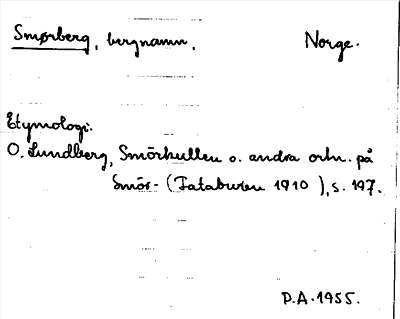 Smørberg, bergnamn. Norge.
Etymologi:
O. Lundberg, Smörkullen o. andra ortn. på
Smör- (Fataburen 1910), s. 197.
D.A. 1955.